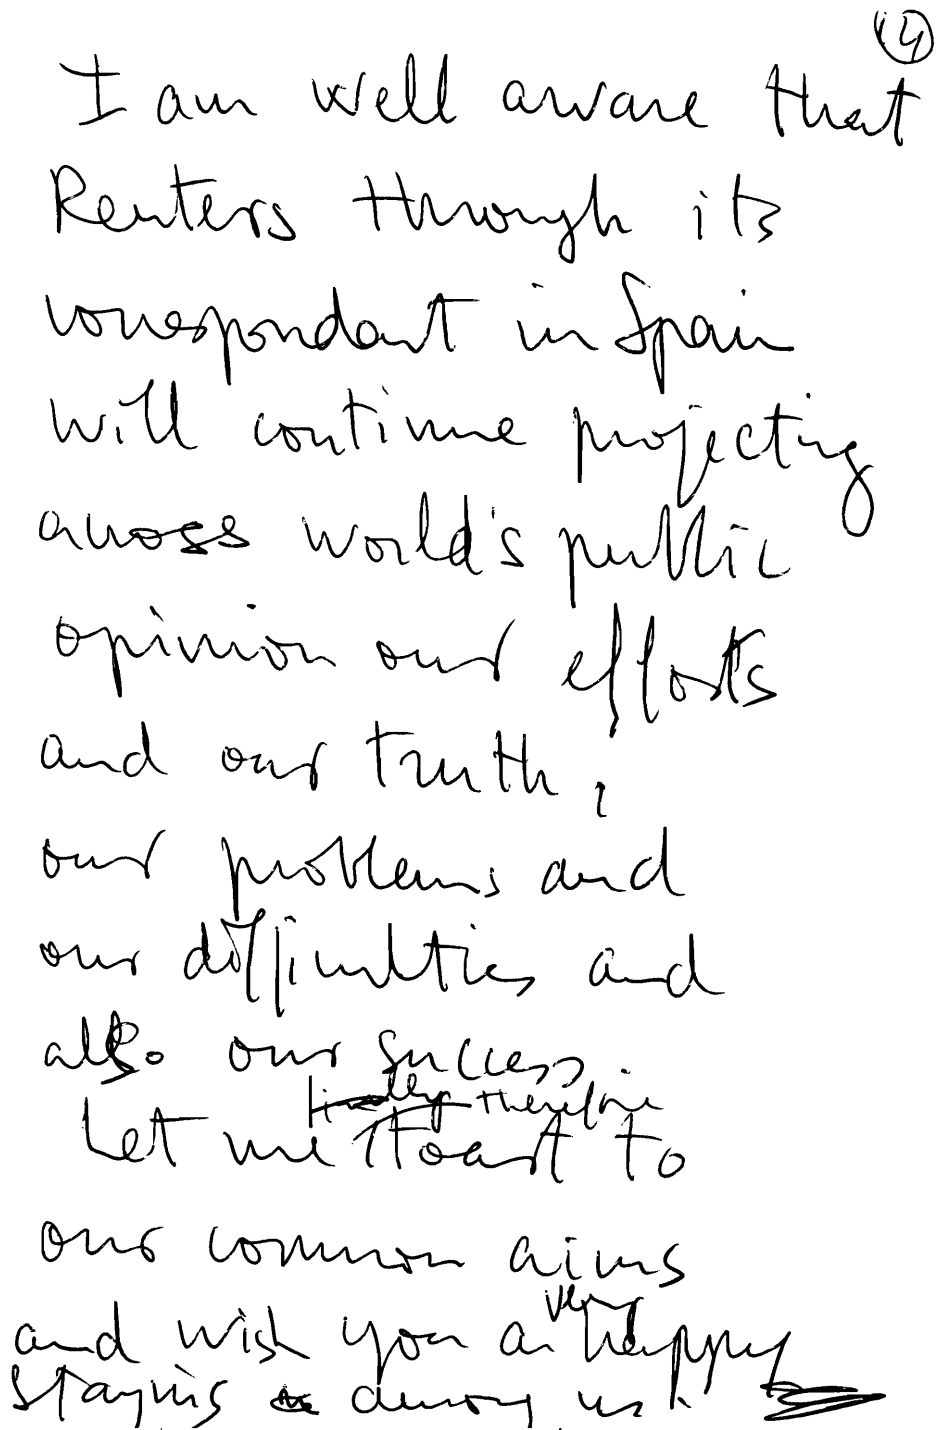 14
I am well aware that
Reuters through its
correspondant in Spain
will continue projecting
across world's public
opinion our efforts
and our truth,
our problems and
our difficulties and
also our success.
finally therefore
Let me toast to
our common aims
very
and wish you a happy
staying among us.